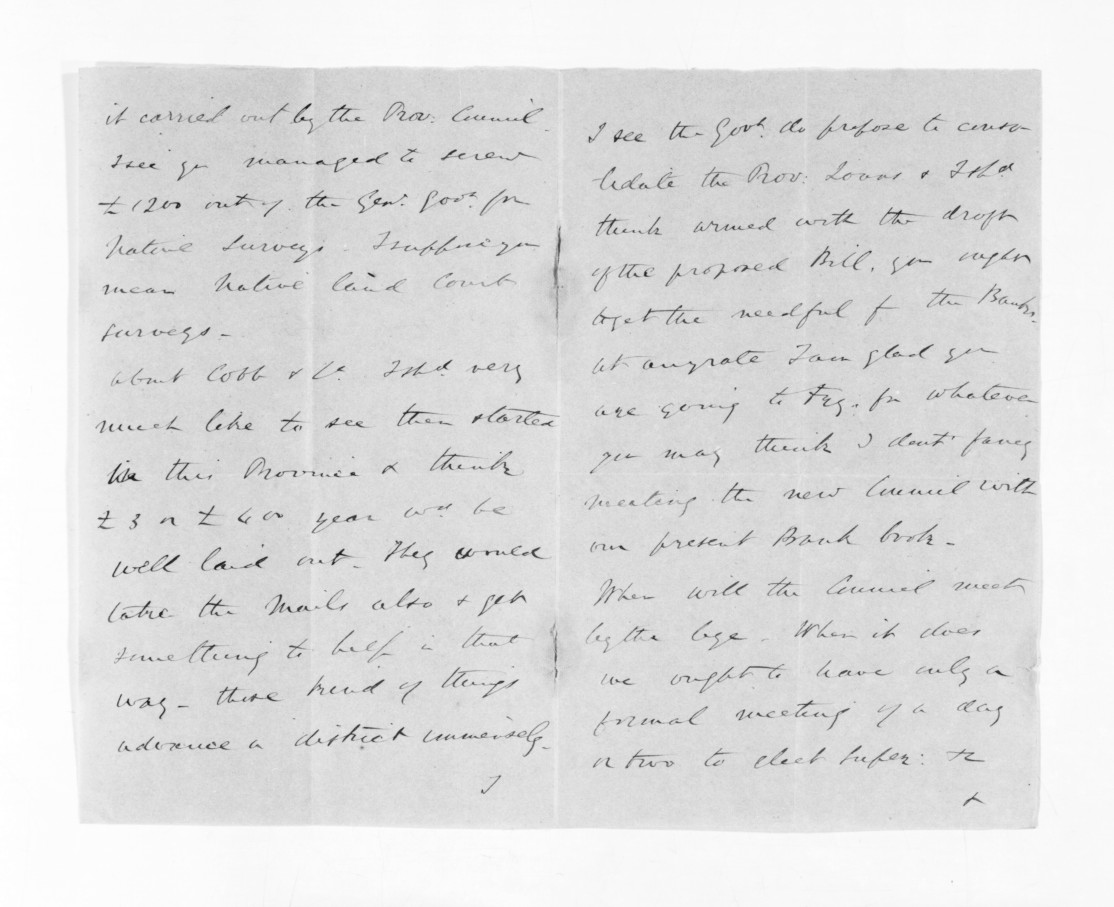 it carried out by the Prov: Council.
I see you managed to screw
£1200 out of the Genl. Govt. for
Native Surveys. I suppose you
mean Native land Court
surveys -
about Cobb & Co. I shd. very
much like to see them started
in this Province & think
£3 or £400 year wd. be
well laid out. They would
take the Mails also & get
something to help in that
way - these kind of things
advance a district immensely.
I
I see the Govt. do propose to conso-
lidate the Prov: Loans & I shd.
think armed with the draft
of the proposed Bill, you ought
to get the needful f the Banks.
at anyrate I am glad you
are going to try. for whatever
you may think I dont fancy
meeting the new Council with
our present Bank book -
When will the Council meet
by the bye. When it does
we ought to have only a
formal meeting of a day
or two to elect Super: &c
&